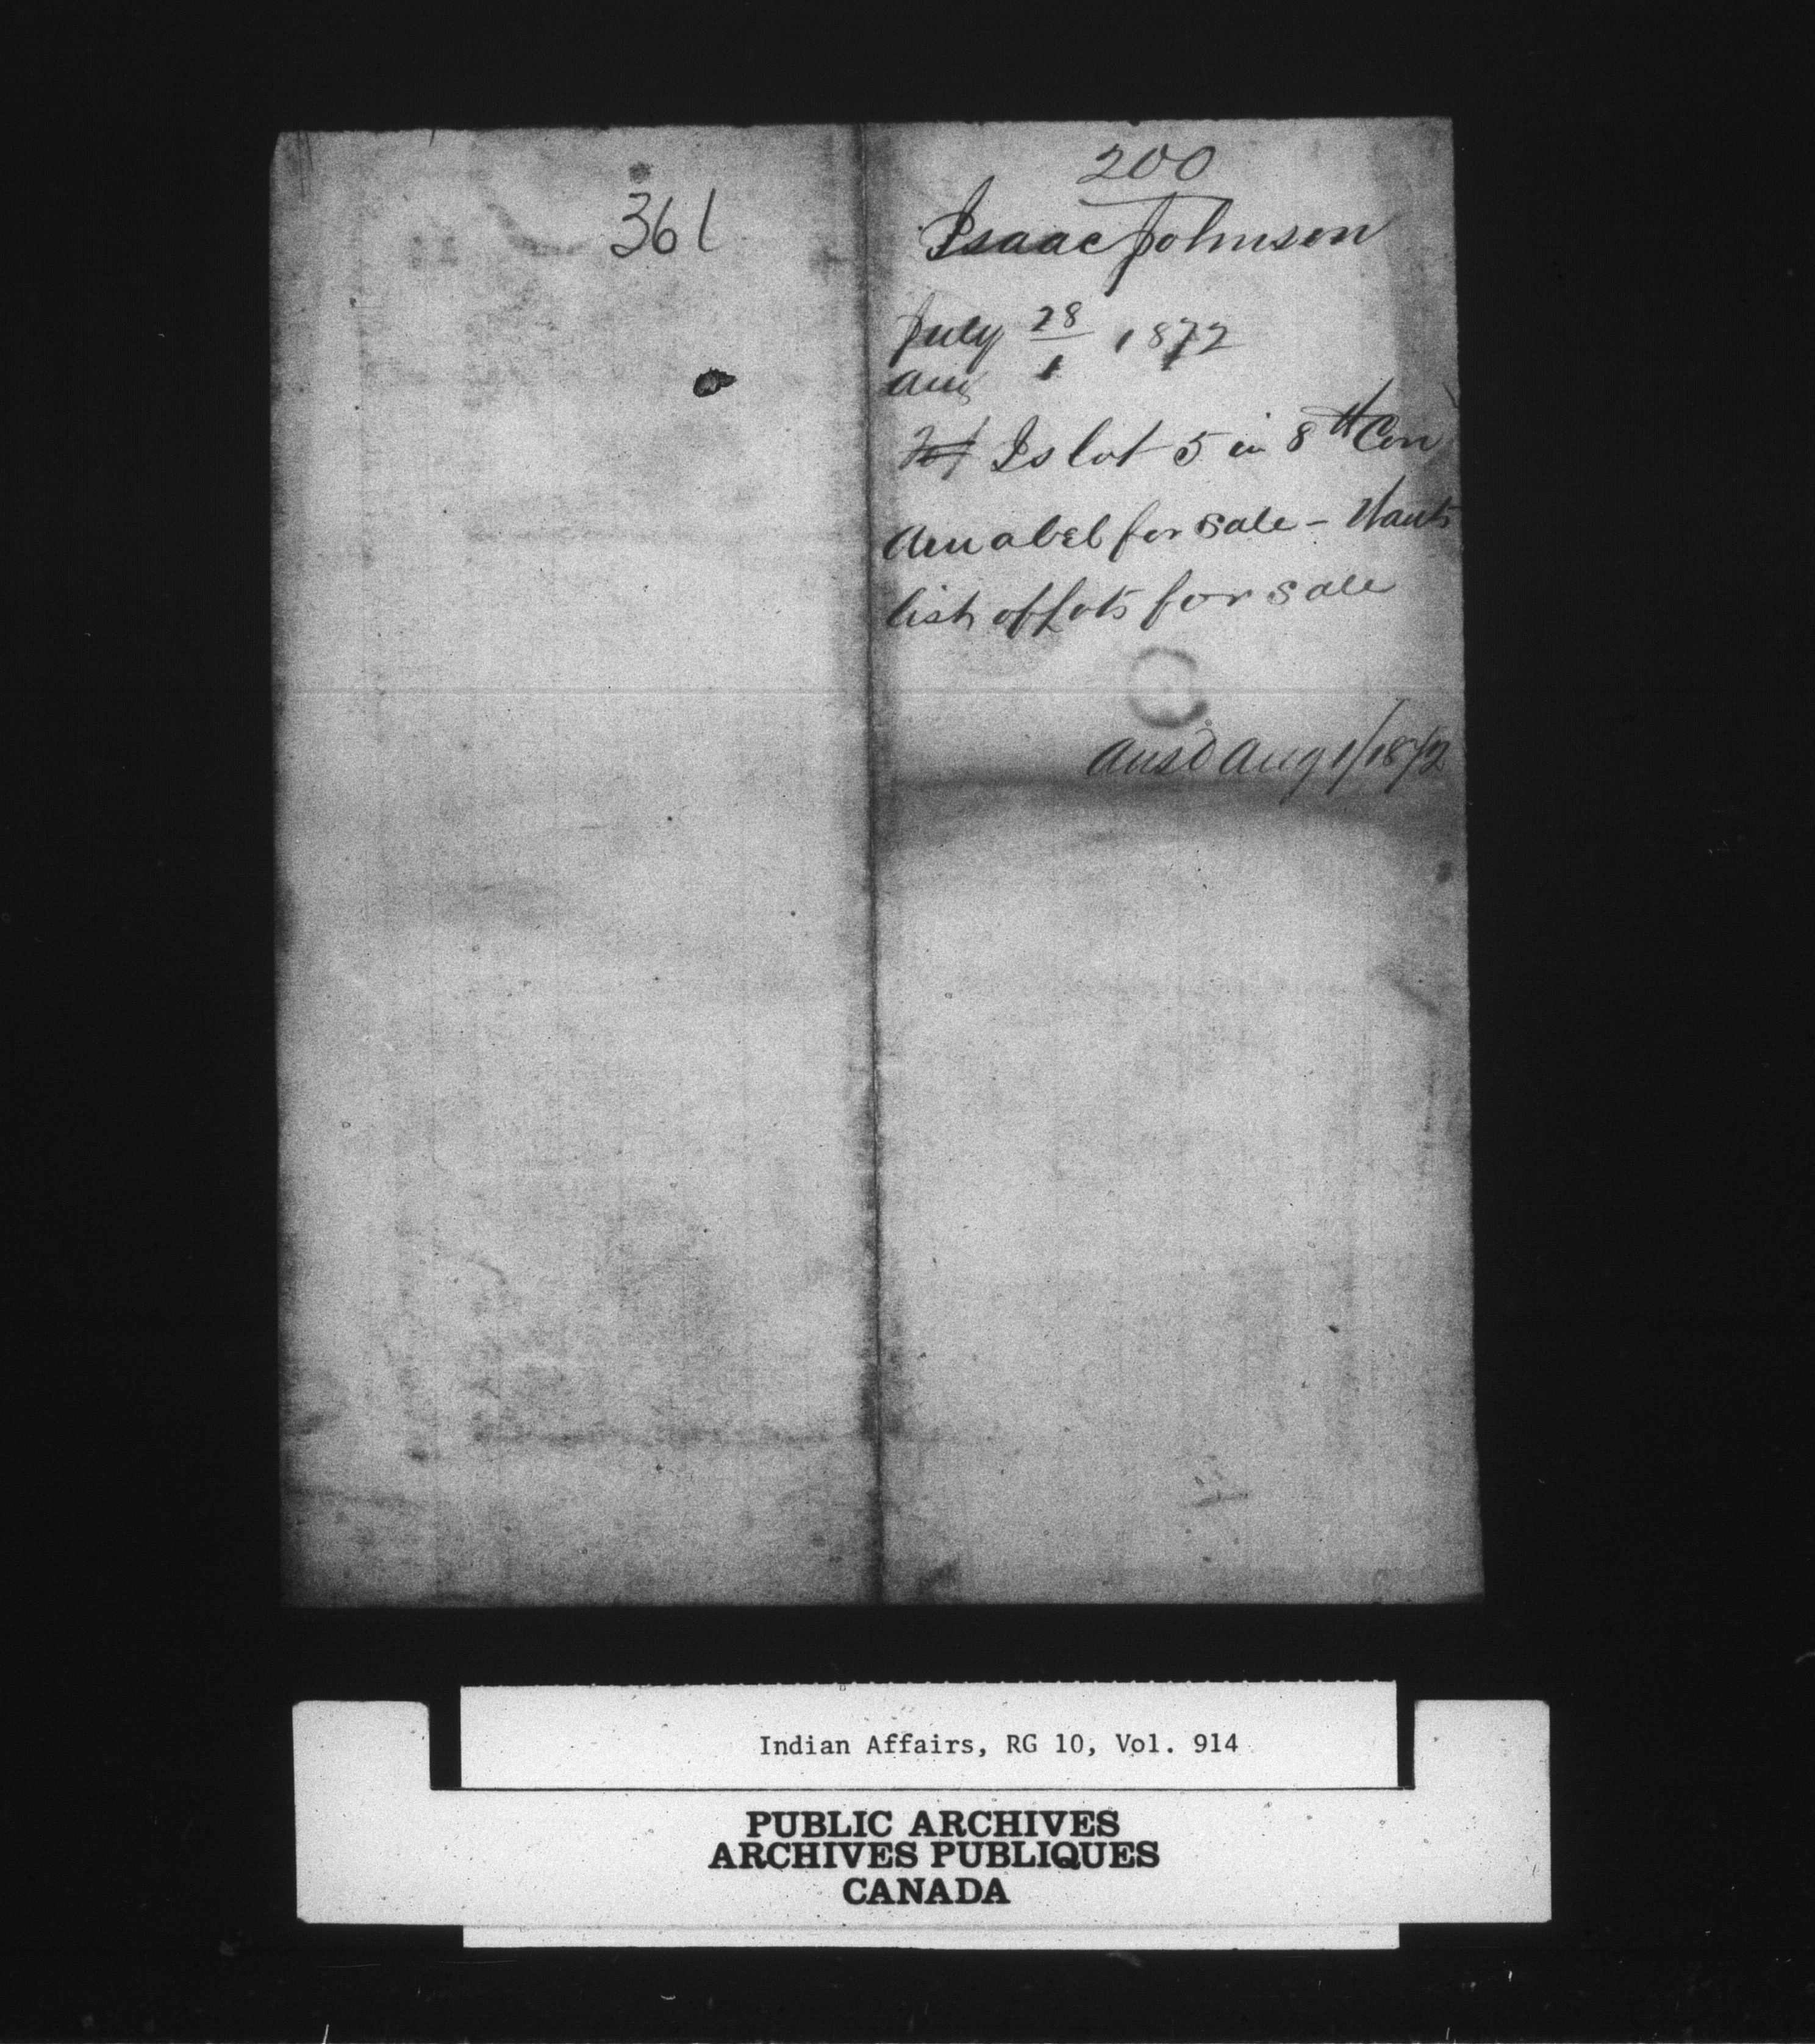 361
200
Isaac Johnson
July 28 1872
Aug 1
Is lot 5 in 8th Con
Amabel for sale - Wants
list of Lots for sale
Ansd Aug 1/1872
Indian Affairs, RG 10, Vol. 914
PUBLIC ARCHIVES
ARCHIVES PUBLIQUES
CANADA